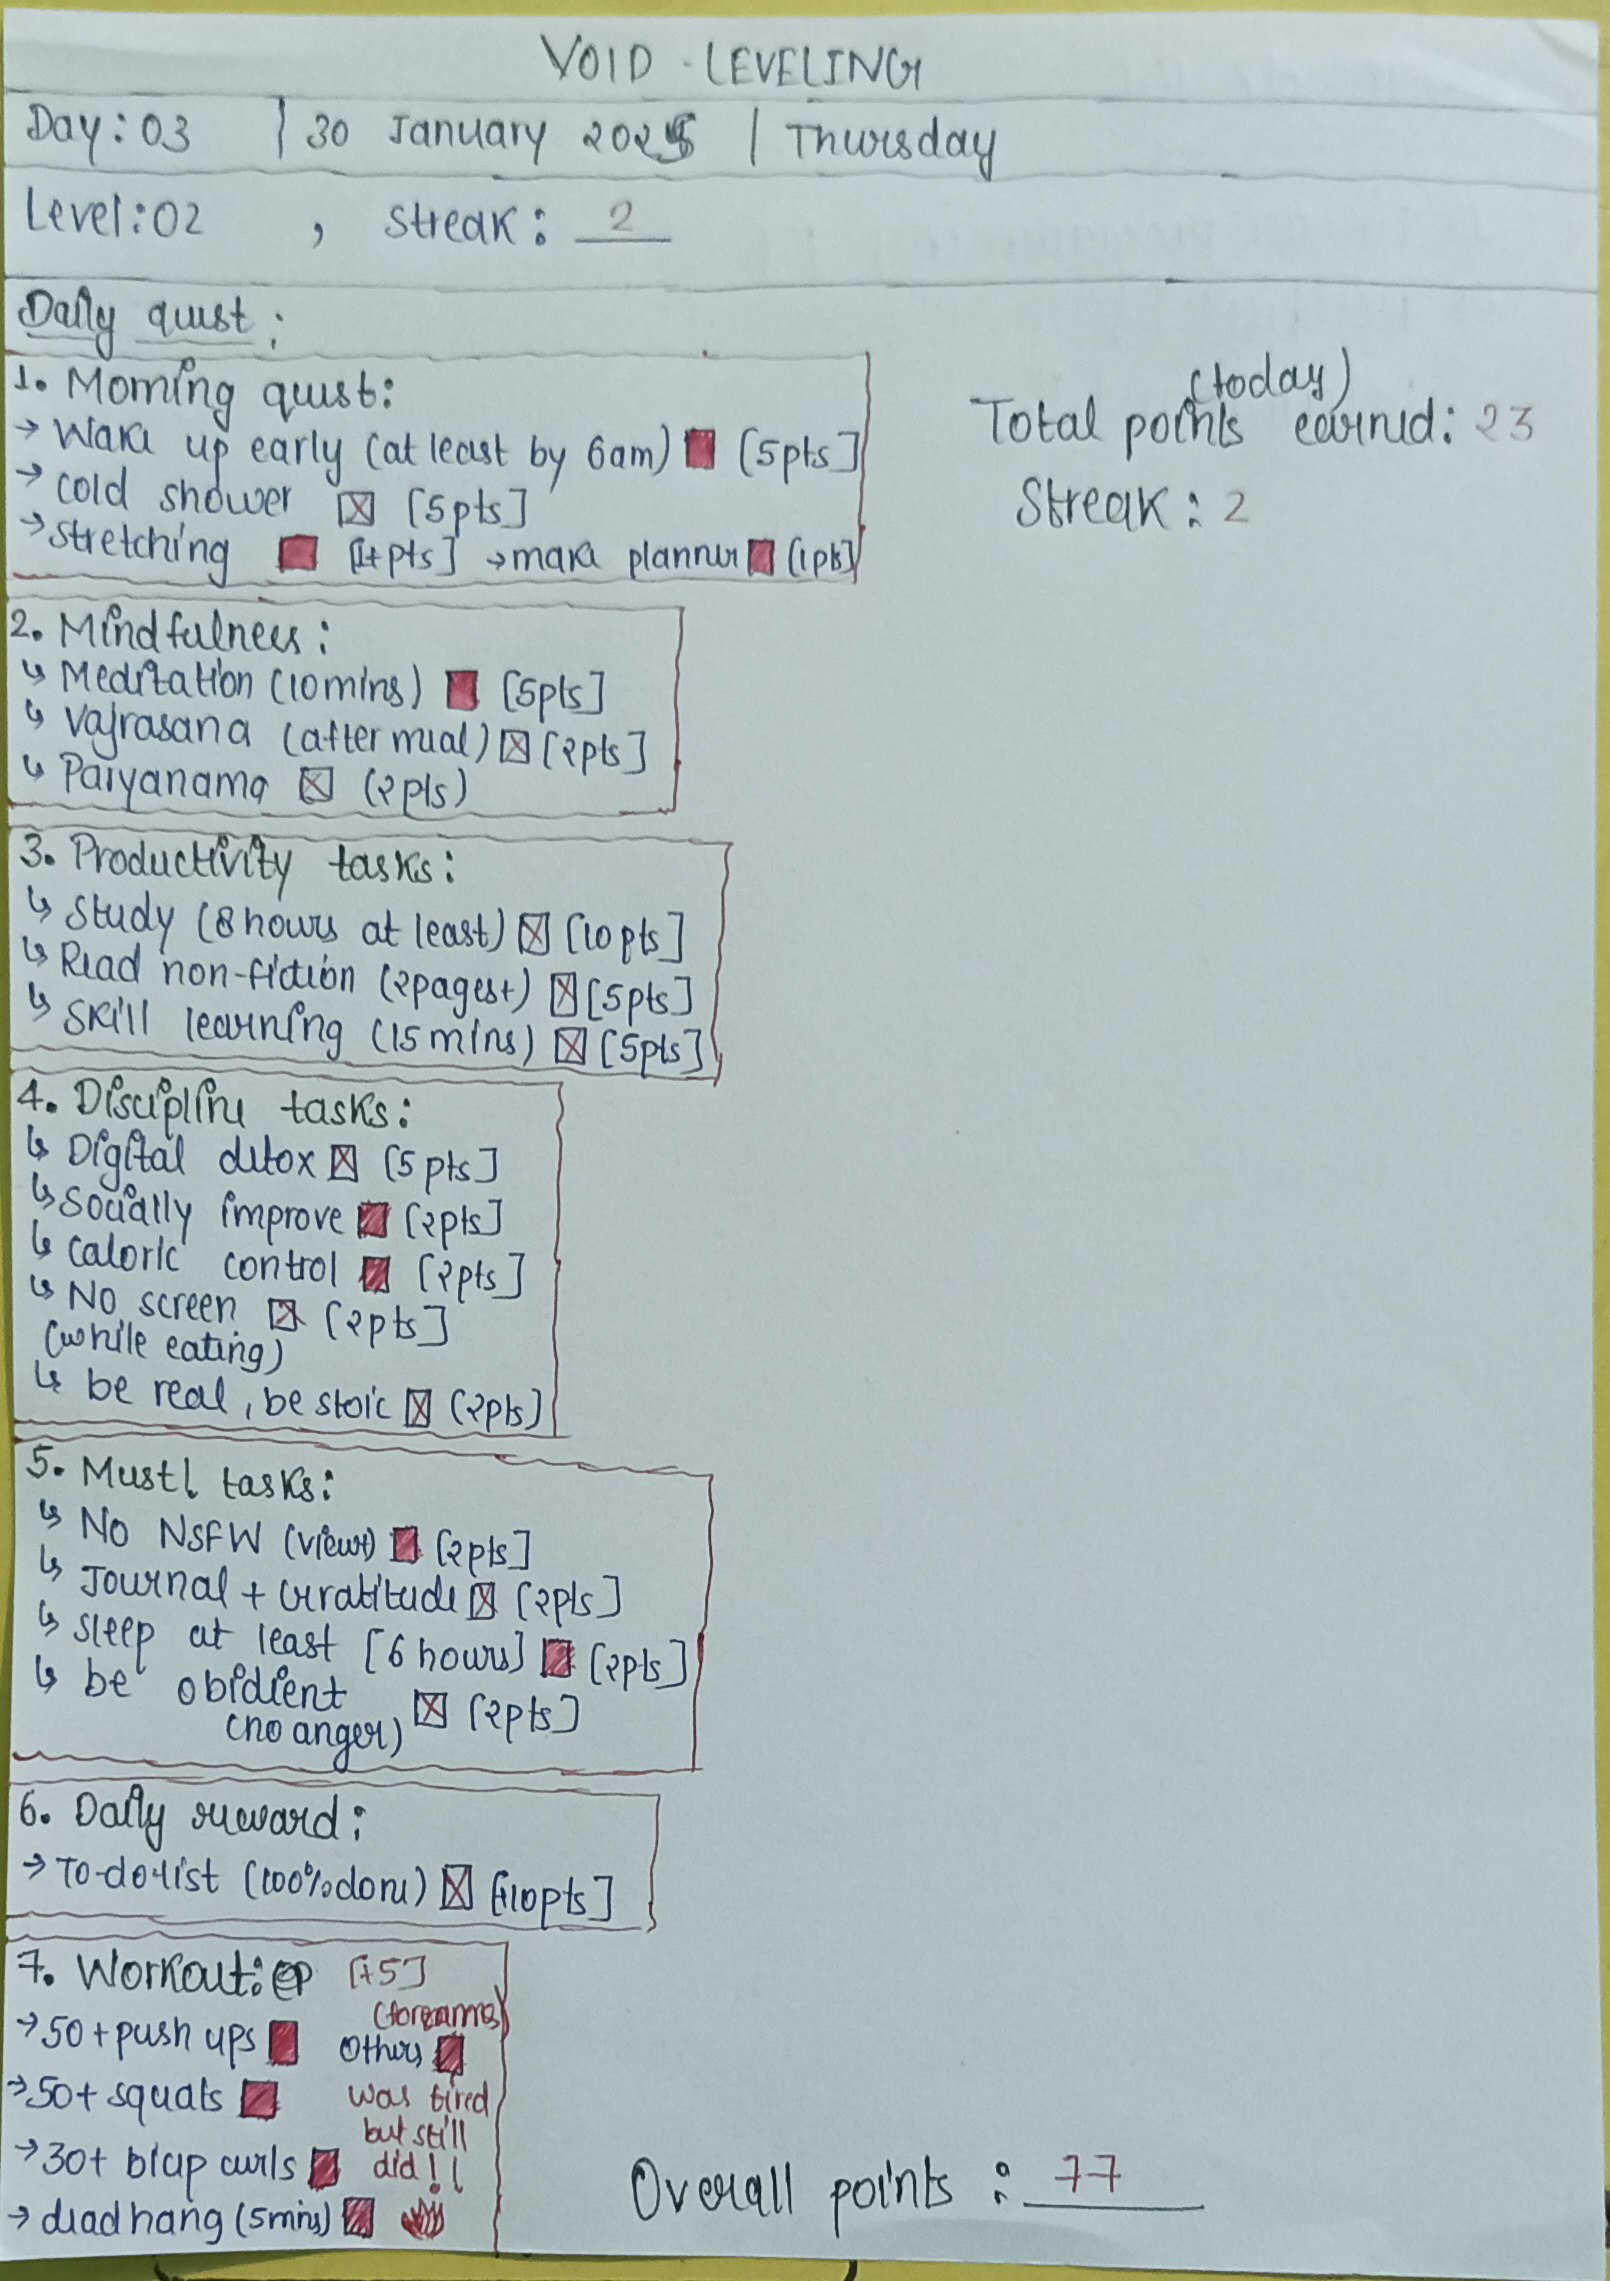 VOID - LEVELING
Day: 03 | 30 January 2025 | Thursday
Level: 02 , Streak: 2
Daily quest:
1. Morning quest:
→ Wake up early (at least by 6am) [5pts]
→ cold shower ☒ [5pts]
→ stretching [1+pts] → make planner (1pts)
(today)
Total points earned: 23
Streak: 2
2. Mindfulness:
↳ Meditation (10mins) [5pts]
↳ Vajrasana (after meal) ☒ [2pts]
↳ Paryanama ☒ (2pts)
3. Productivity tasks:
↳ Study (8 hours at least) ☒ [10pts]
↳ Read non-fiction (2pages+) ☒ [5pts]
↳ Skill learning (15 mins) ☒ [5pts]
4. Discipline tasks:
↳ Digital detox ☒ [5pts]
↳ Socially improve [2pts]
↳ caloric control [2pts]
↳ No screen ☒ [2pts]
(while eating)
↳ be real, be stoic ☒ (2pts]
5. Must! tasks:
↳ No NSFW (view) [2pts]
↳ Journal + Gratitude ☒ [2pts]
↳ sleep at least [6 hours] [2pts]
↳ be obidient
(no anger) ☒ [2pts]
6. Daily reward:
→ To-do-list (100% done) ☒ [+10pts]
7. Workout: [+5]
(forearms)
→ 50+ push ups others
→ 50+ squats was tired
but still
→ 30+ bicep curls did!!
→ dead hang (5mins)
Overall points: 77